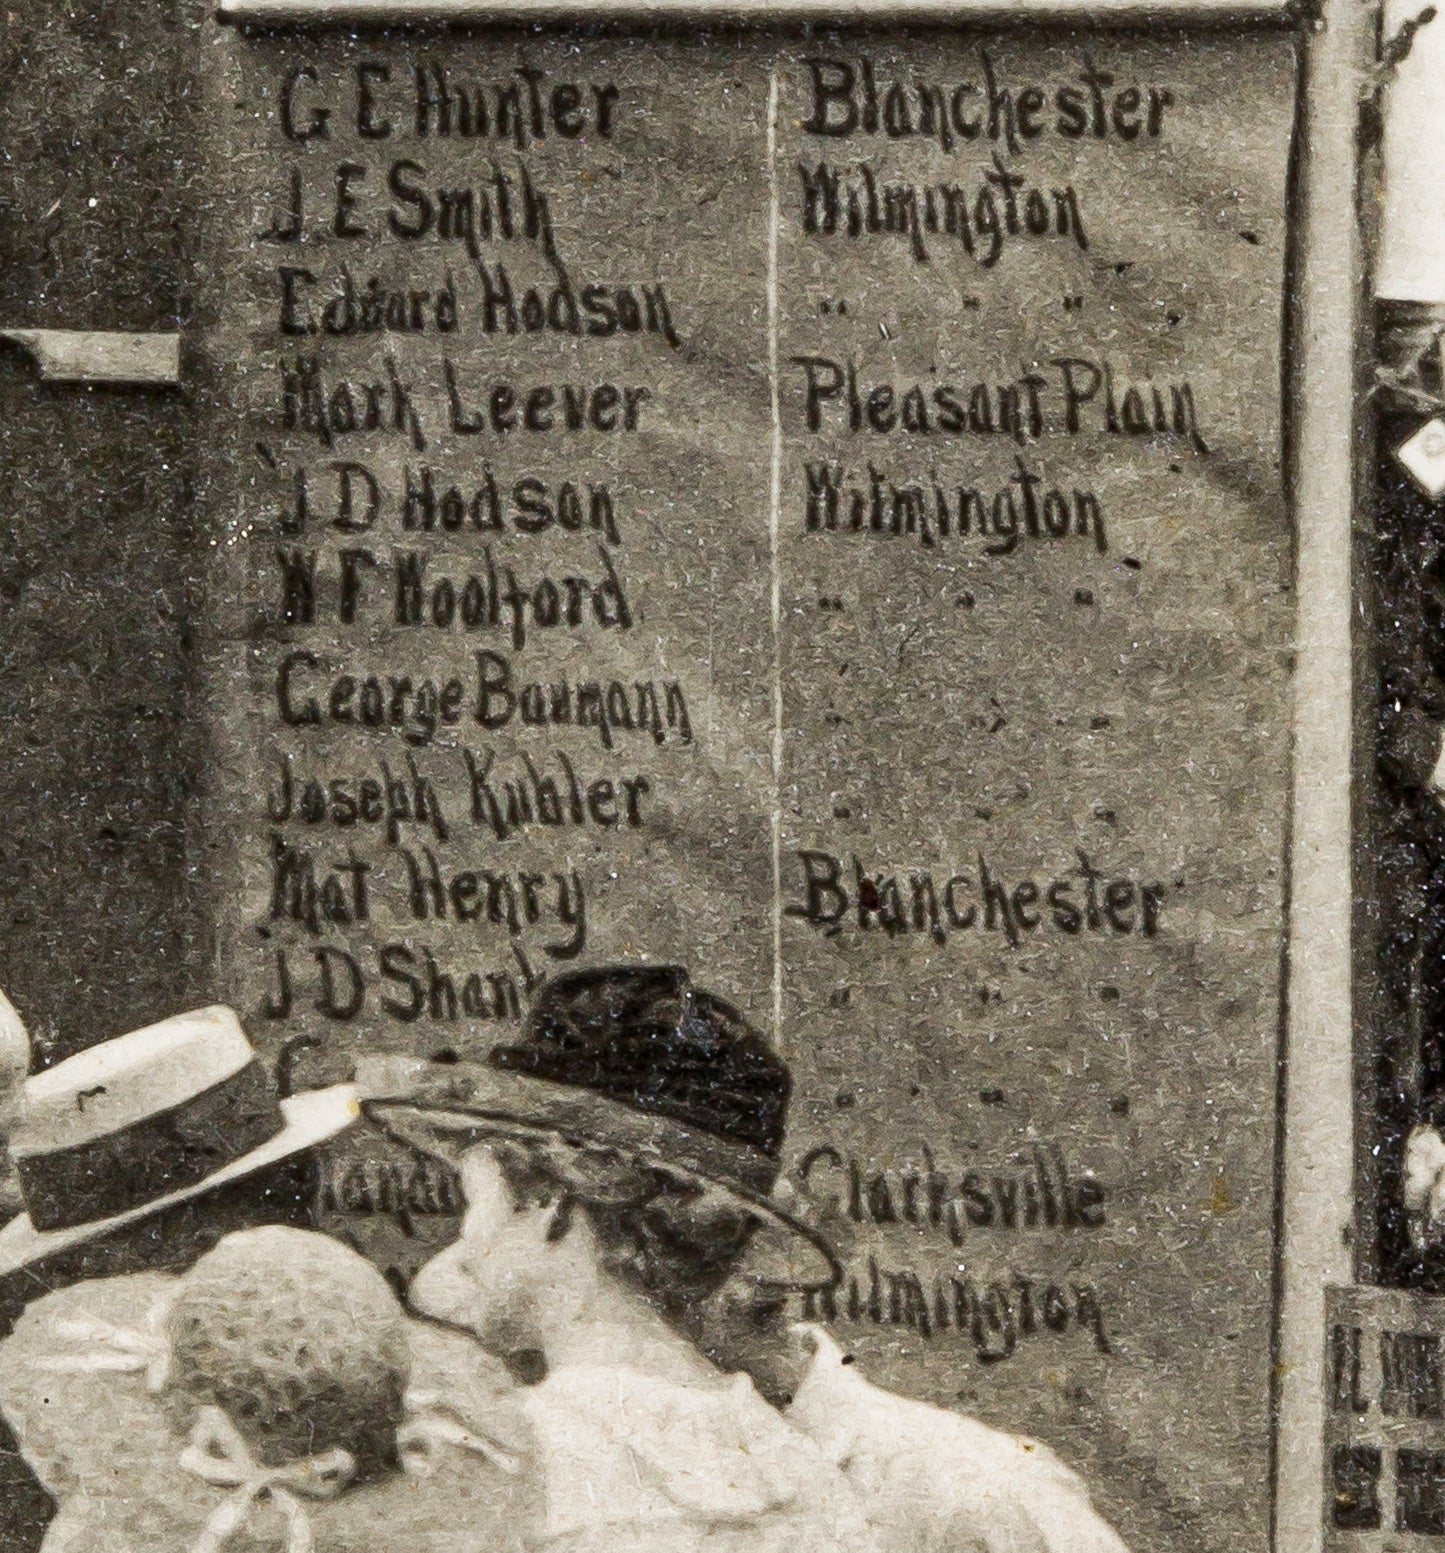 G E Hunter Blanchester
J. E Smith Wilmington
Edward Hodson " " "
Mark Leever Pleasant Plain
J D Hodson Wilmington
W F Woolford " " "
George Baumann " " "
Joseph Kubler " " "
Mat Henry Blanchester
J D Shank " " "
" " "
Clarksville
Wilmington